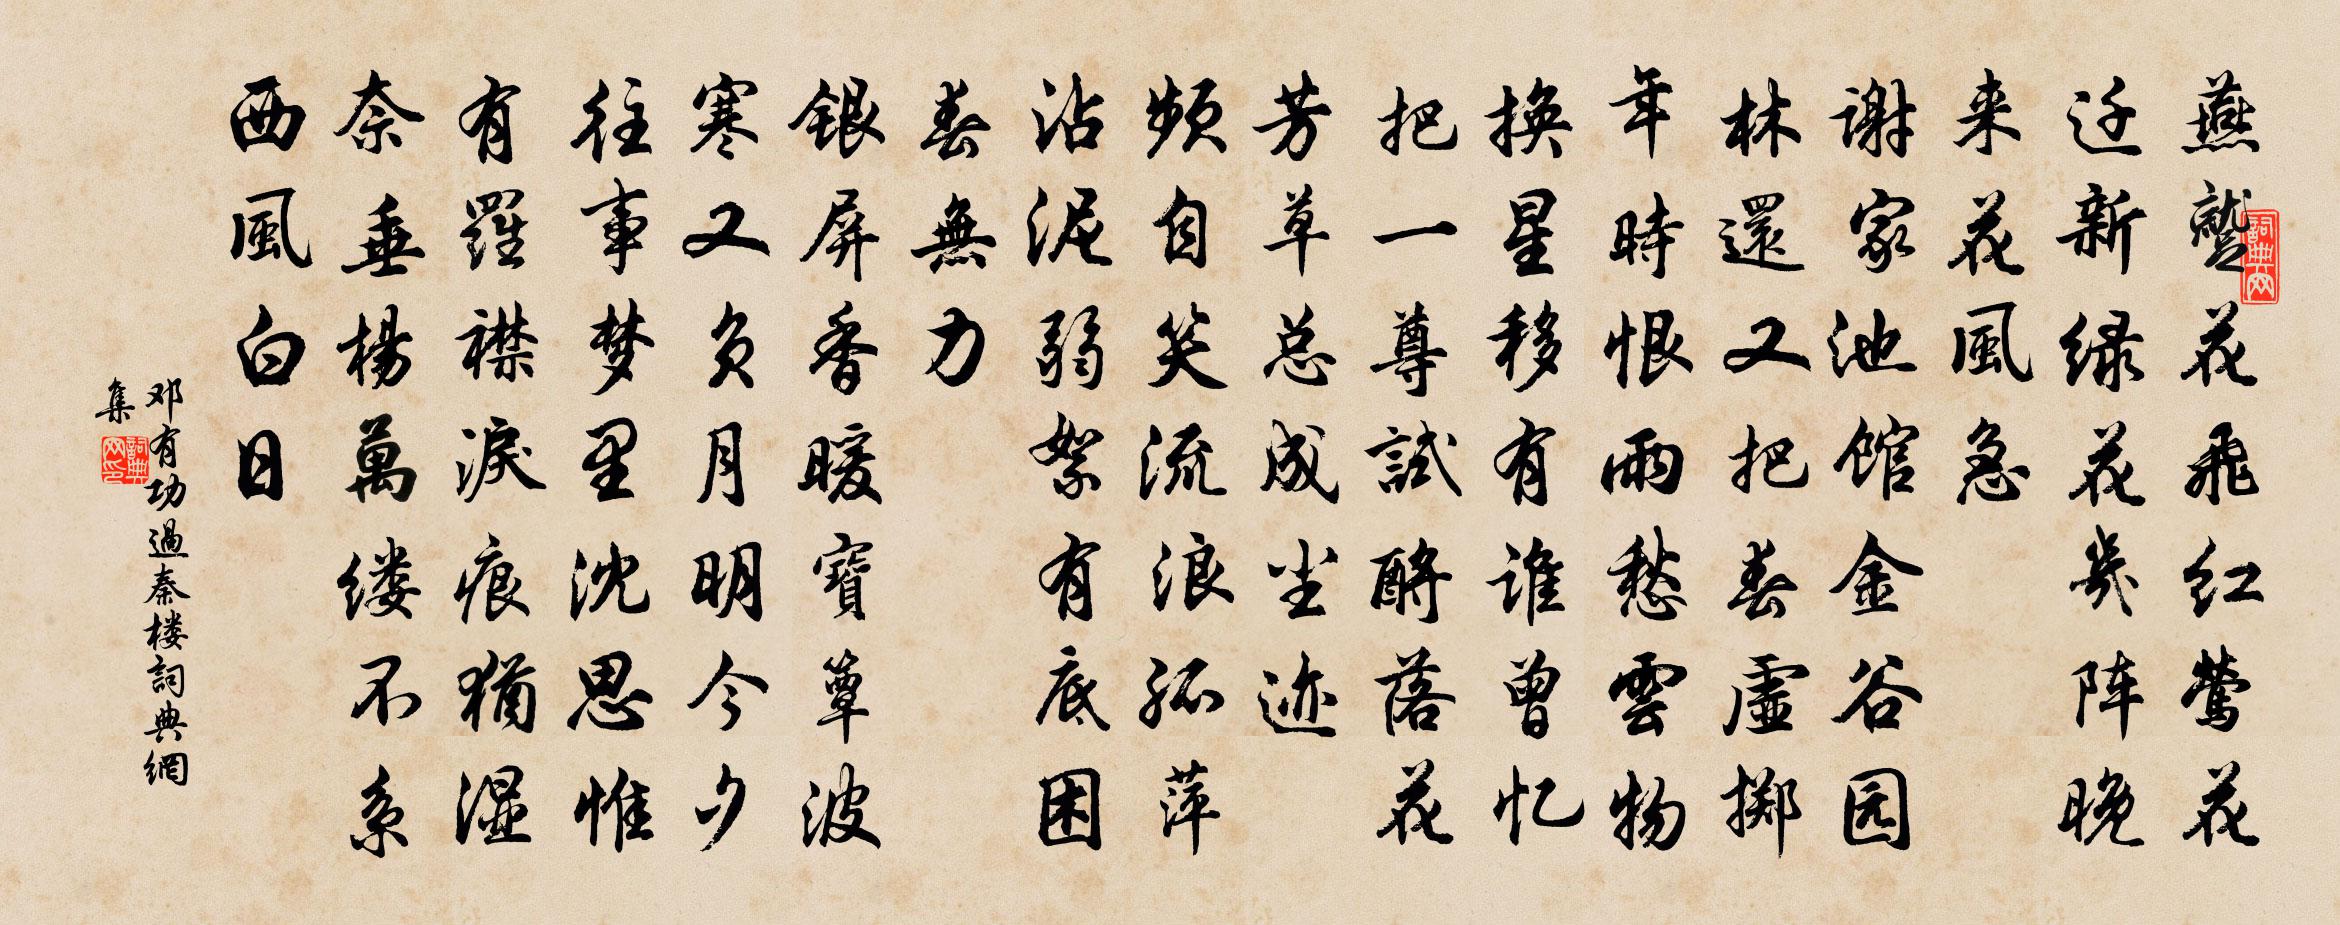 燕蹴花飛红莺花
迁新绿花幾阵晚
来花風急
谢家池馆金谷园
林還又把春虚掷
年時恨雨愁雲物
换星移有谁曾忆
把一尊試酹落花
芳草总成尘迹
频自笑流浪孤萍
沾泥弱絮有底困
春無力
银屏香暖寶簟波
寒又负月明今夕
往事梦里沈思惟
有羅襟淚痕猶湿
奈垂楊萬缕不系
西風白日
邓有功過秦楼詞典網
集
詞典网
詞典网印